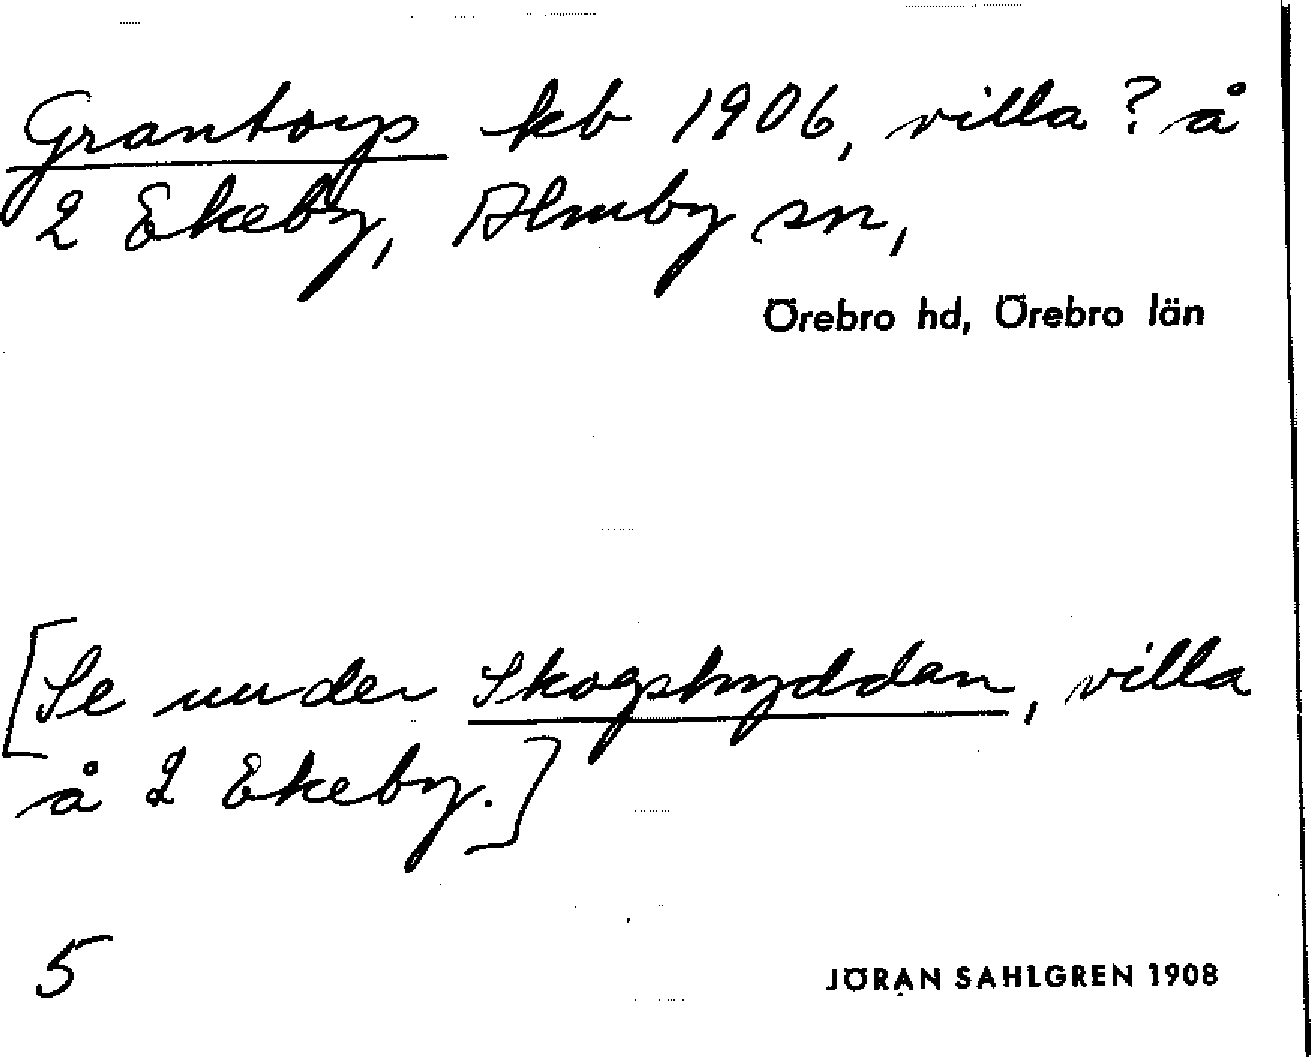 Grantorp kb 1906, villa? å
2 Ekeby, Almby sn,
Örebro hd, Örebro län
[Se under Skogshyddan, villa
å 2 Ekeby.]
5
JÖRAN SAHLGREN 1908